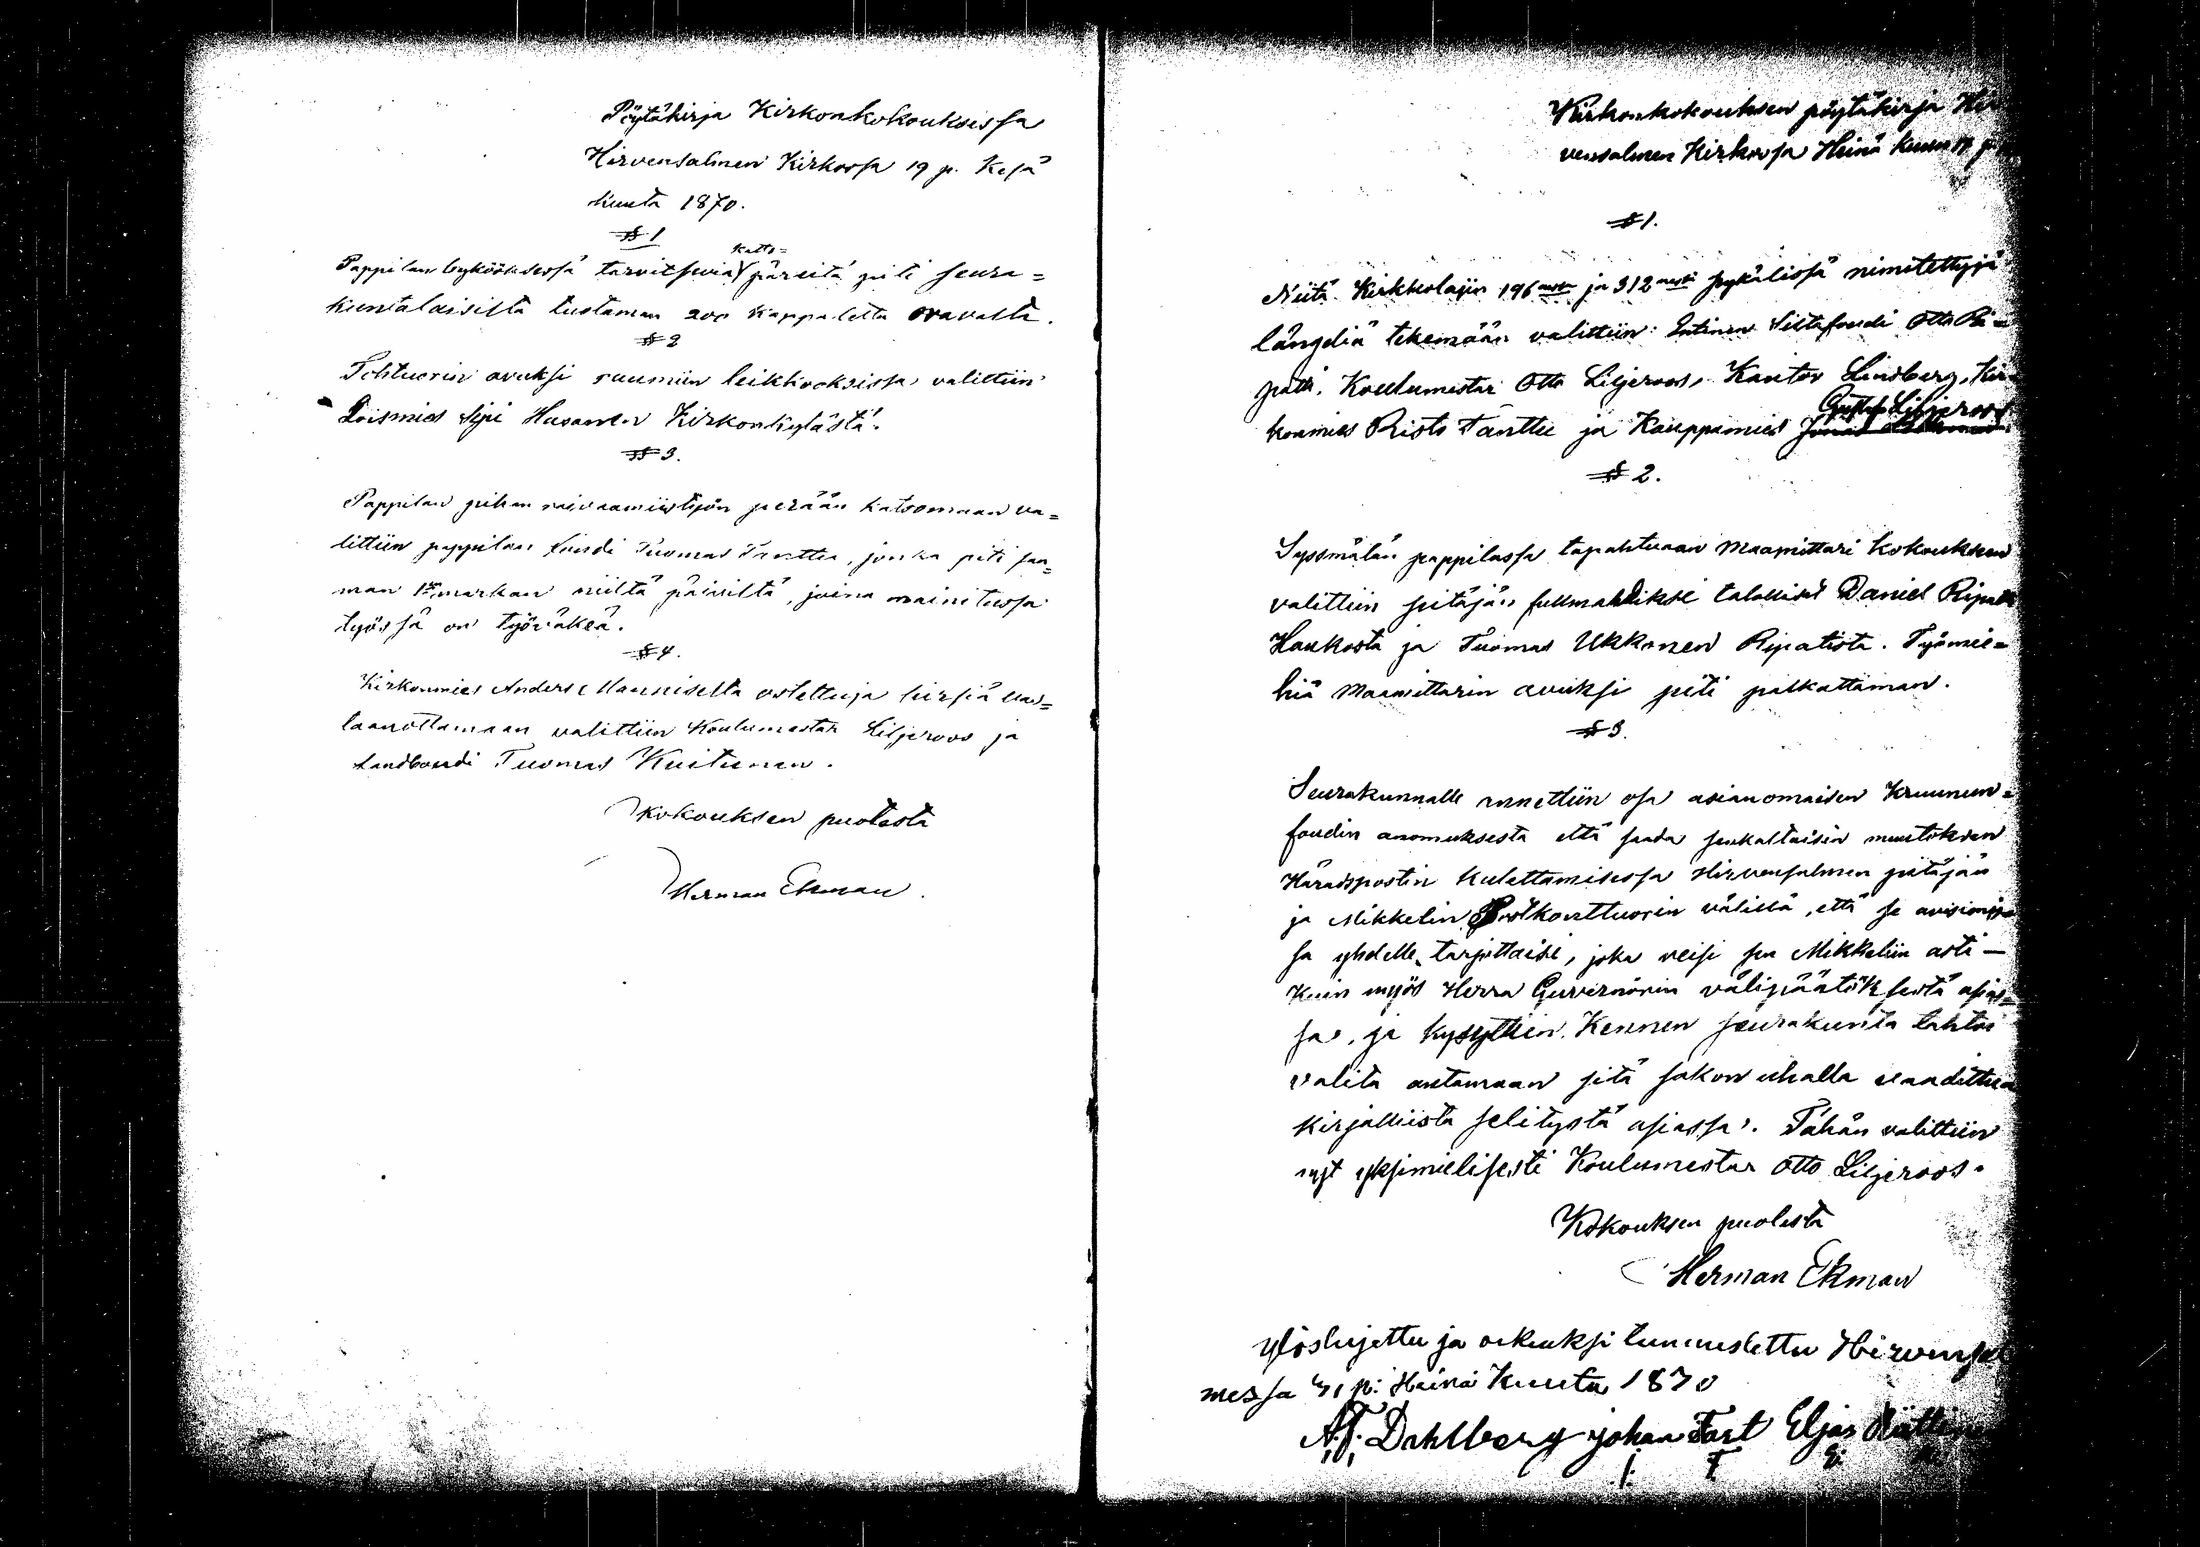 Pöytäkirja Kirkonkokouksissa
Hirvensalmen Kirkossa 19 p. Kesä
kuuta 1870.
§ 1
Katto=
Pappilan lykööksessä tarvitsevia päreitä piti seura=
kuntalaisilta tustaman 200 Kappaletta oravalta.
§ 2
Tohtuorin avuksi ruumiin leikkooksissa valittiin
Loismies Sipi Husanen Kirkonkylästä.
§ 3.
Pappilan pihan raivaamiistyön perään katsomaan va=
littiin pappilan Landi Tuomas Tanttu, jonka piti saa=
man 1 markan niiltä päiviltä, joina mainitussa
työssä on työväkeä.
§ 4.
Kirkonmies Anders Manniselta ostettuja hirsiä vas=
taanottamaan valittiin Koulumestar Liljeroos ja
Landbondi Tuomas Kuitunen.
Kokouksen puolesta
Herman Ekman.
Kirkonkokouksen pöytäkirja Hir
vensalmen Kirkossa Heinä kuun
§ 1.
Neitä Kirkkolajin 196 ja 312 pykälissä nimitettyjä
längdiä tekemään valittiin: Entinen Siltafoudi Otto Ri=
patti, Koulumestar Otto Liljeroos, Kantor Lindberg, Kir
Gustaf Liljeroos
konmies Risto Tanttu ja Kauppamies Jonas
§ 2.
Syssmälän pappilassa tapahtuvaan Maamittari Kokouksen
valittiin pitäjän fullmahdikse talolliset Daniel Ripatti
Haukosta ja Tuomas Ukkonen Ripatista. Työmie=
hiä Maamittarin avuksi piti palkattaman.
§ 3.
Seurakunnalle annettiin osa asianomaisen Kruunun=
foudin anomuksesta että saada senkaltaisin muutoksen
Häradspostin kulettamisessa Hirvensalmen pitäjän
ja Mikkelin Postkonttuorin välillä, että se
sa yhdelle tarjottaisi, joka veisi sen Mikkeliin asti —
Kuin myös Herra Guvernörin välipäätöksestä asias=
sa, ja kysyttiin Kennen seurakunta tahtoi
valita antamaan sitä sakon uhalla vaadittua
kirjallista selitystä asiassa. Tähän valittiin
nyt yksimielisesti Koulumestar Otto Liljeroos.
Kokouksen puolesta
Herman Ekman
Ylöslujettu ja oikeuksi tunnustettu Hirvensal
messa 31 p: Heinä Kuuta 1870
A.J. Dahlberg Johan Tast Eljas